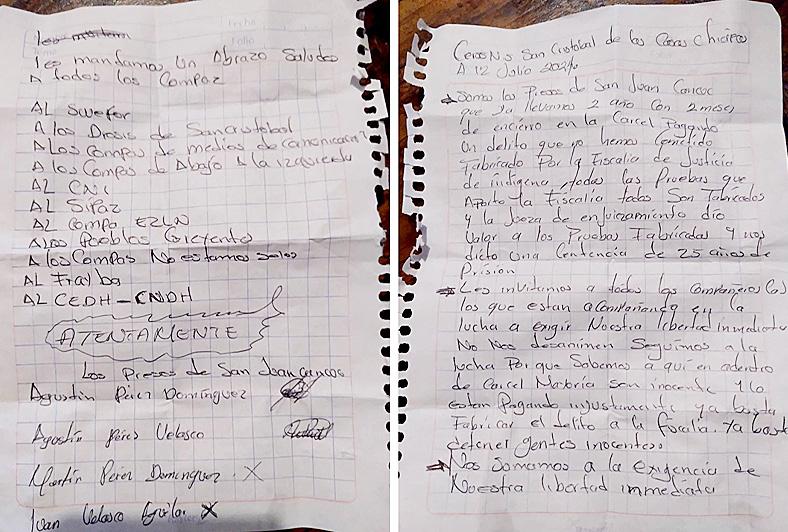 les mandamos Un Abrazo Saludos
A todos los Compaz
AL Swefor
A los Diosis de Sancristobal
A Los Compas de medios de
A los Compas de Abajo A la izquierda
AL CNI
AL Sipaz
AL Compa EZLN
A Los Pueblos Creyento
A los Compas No estamos solos
AL Frayba
AL CEDH-CNDH
ATENTAMENTE
Los Presos de San Juan Cancoc
Agustín Pérez Domínguez
Agustín Péres Velasco
Martín Perez Dominguez. X
Juan Velasco Aguilar X
CerosN5 San Cristobal de las Casas Chiapas
A 12 Julio 2024
Somos los Presos de San Juan Cancuc
que ya llevamos 2 año Con 2 meses
de encierro en la Carcel Pagando
Un delito que no hemos Cometido
Fabricado Por la Fiscalia de Justicia
de indigena, todas las Pruebas que
Aporto la Fiscalia todas Son Fabricados
y la Jueza de enjuizamiento dio
Valor a los Pruebas Fabricadas y nos
dicto Una Centencia de 25 años de
Prision
Les invitamos a todos los Compañeros (as)
los que estan acompañando en la
lucha a exigir Nuestra libertad inmediata
No Nos desanimen Seguimos a la
lucha Porque Sabemos a qui en adentro
de Carcel Mayoria son inocente y lo
estan Pagando injustamente ya basta
Fabricar el delito a la fiscalia. Ya basta
detener gentes inocentes
Nos Somamos a la Exigencia de
Nuestra libertad inmediata